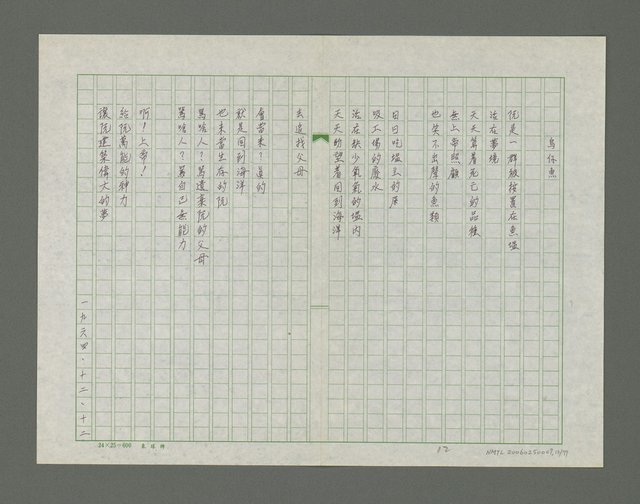 烏仔魚
阮是一群被放置在魚塭
活在夢境
天天等著死亡的品種
無上帝照顧
也笑不出聲的魚類
日日吃塭主的屎
吸工場的廢水
活在缺少氧氣的塭內
天天盼望著回到海洋
去追找父母
會當未？莫的
就是回到海洋
也未當生存的阮
罵啥人？罵遺棄阮的父母
罵啥人？罵自己無能力
啊！上帝！
給阮萬能的神力
讓阮建築偉大的夢
一九六四、十二、十二
24×25=600
12
NMTL 20060250009,12/77